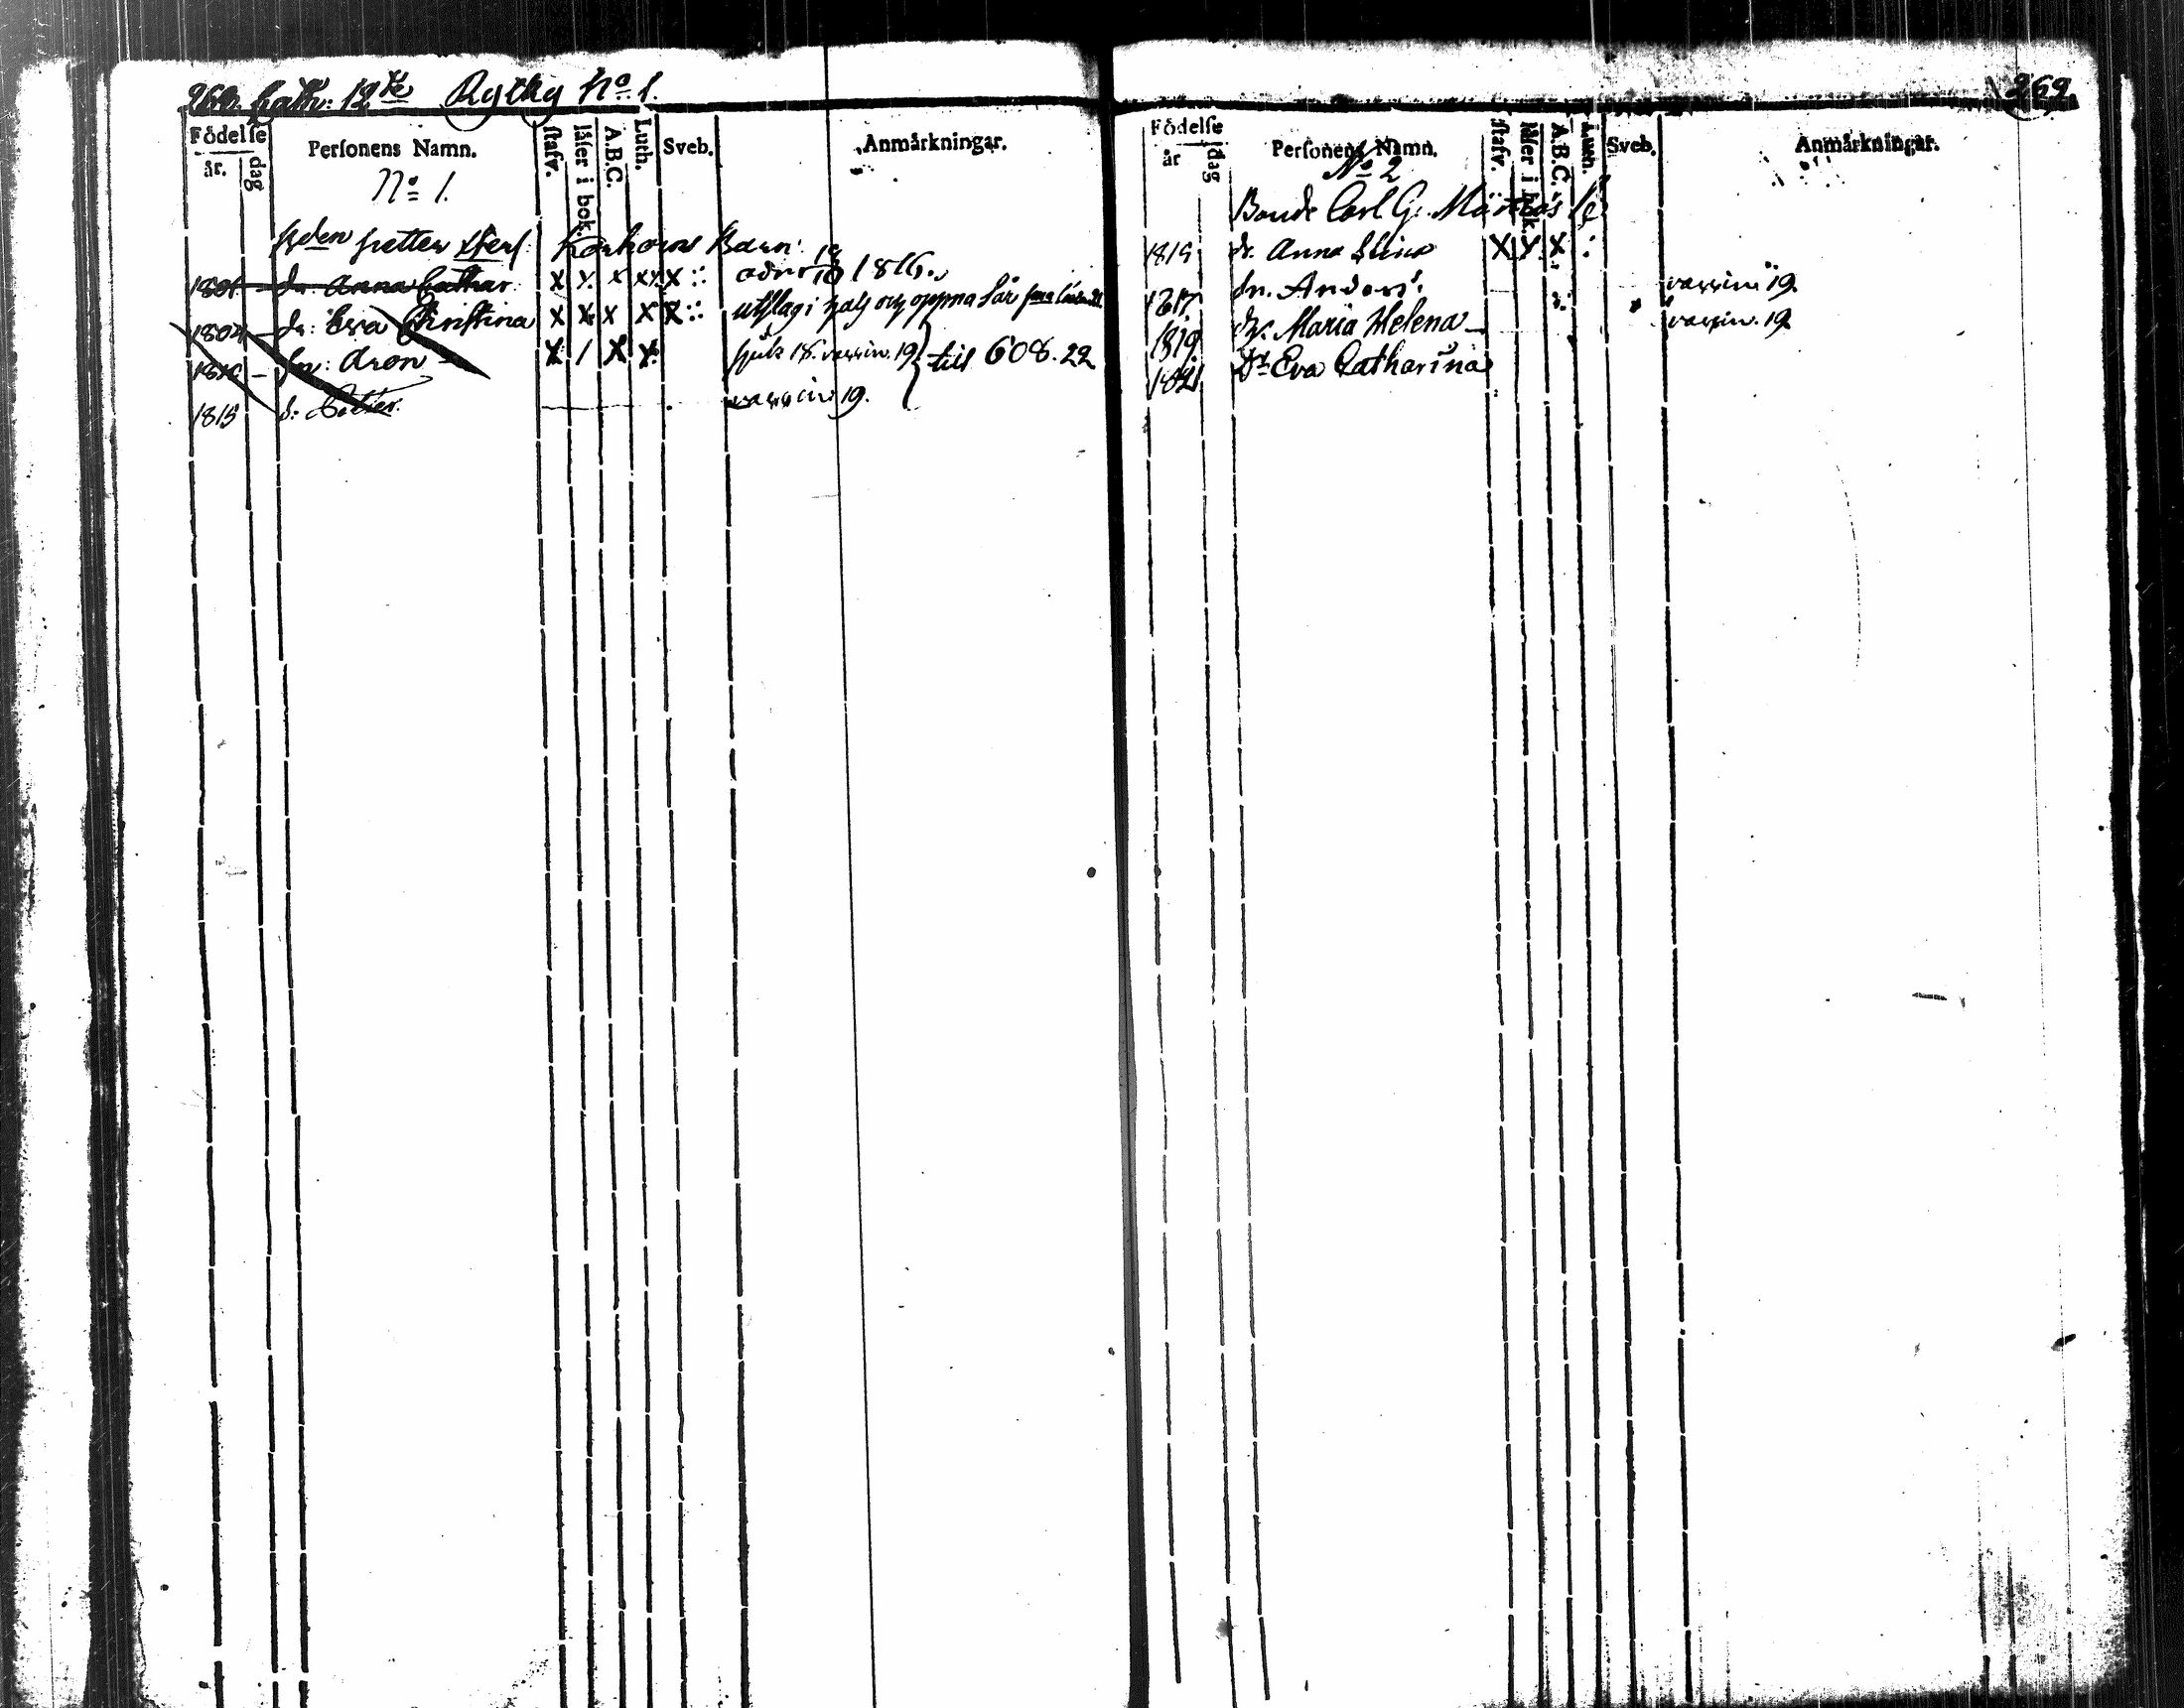 268. Cath: 12te Rytky No 1.
Födelſe
år. dag
Perſonens Namn.
ſtafv.
läſer i bok.
A.B.C.
Luth.
Sveb.
Anmärkningar.
No 1.
Petter Korhoins Barn:
1801 – dr: Anna Cathar: x x x xx x :: 1816.
1804 – dr: Eva Christina x x x x x :: utslag i och öppna sår
1810 – sn: Aron – x / x x sjuk 18. vaccin. 19 } till 608. 22
1815 s: Petter. vaccin 19.
269.
Födelſe
år dag
Perſonens Namn.
ſtafv.
läſer i bok.
A.B.C.
Luth.
Sveb.
Anmärkningar.
No 2
Bonde Carl G.
1815 dr. Anna Stina X X X :
1817. sn. Anders. vaccin 19.
1819. dr. Maria Helena – vaccin. 19.
1821 Dr Eva Catharina